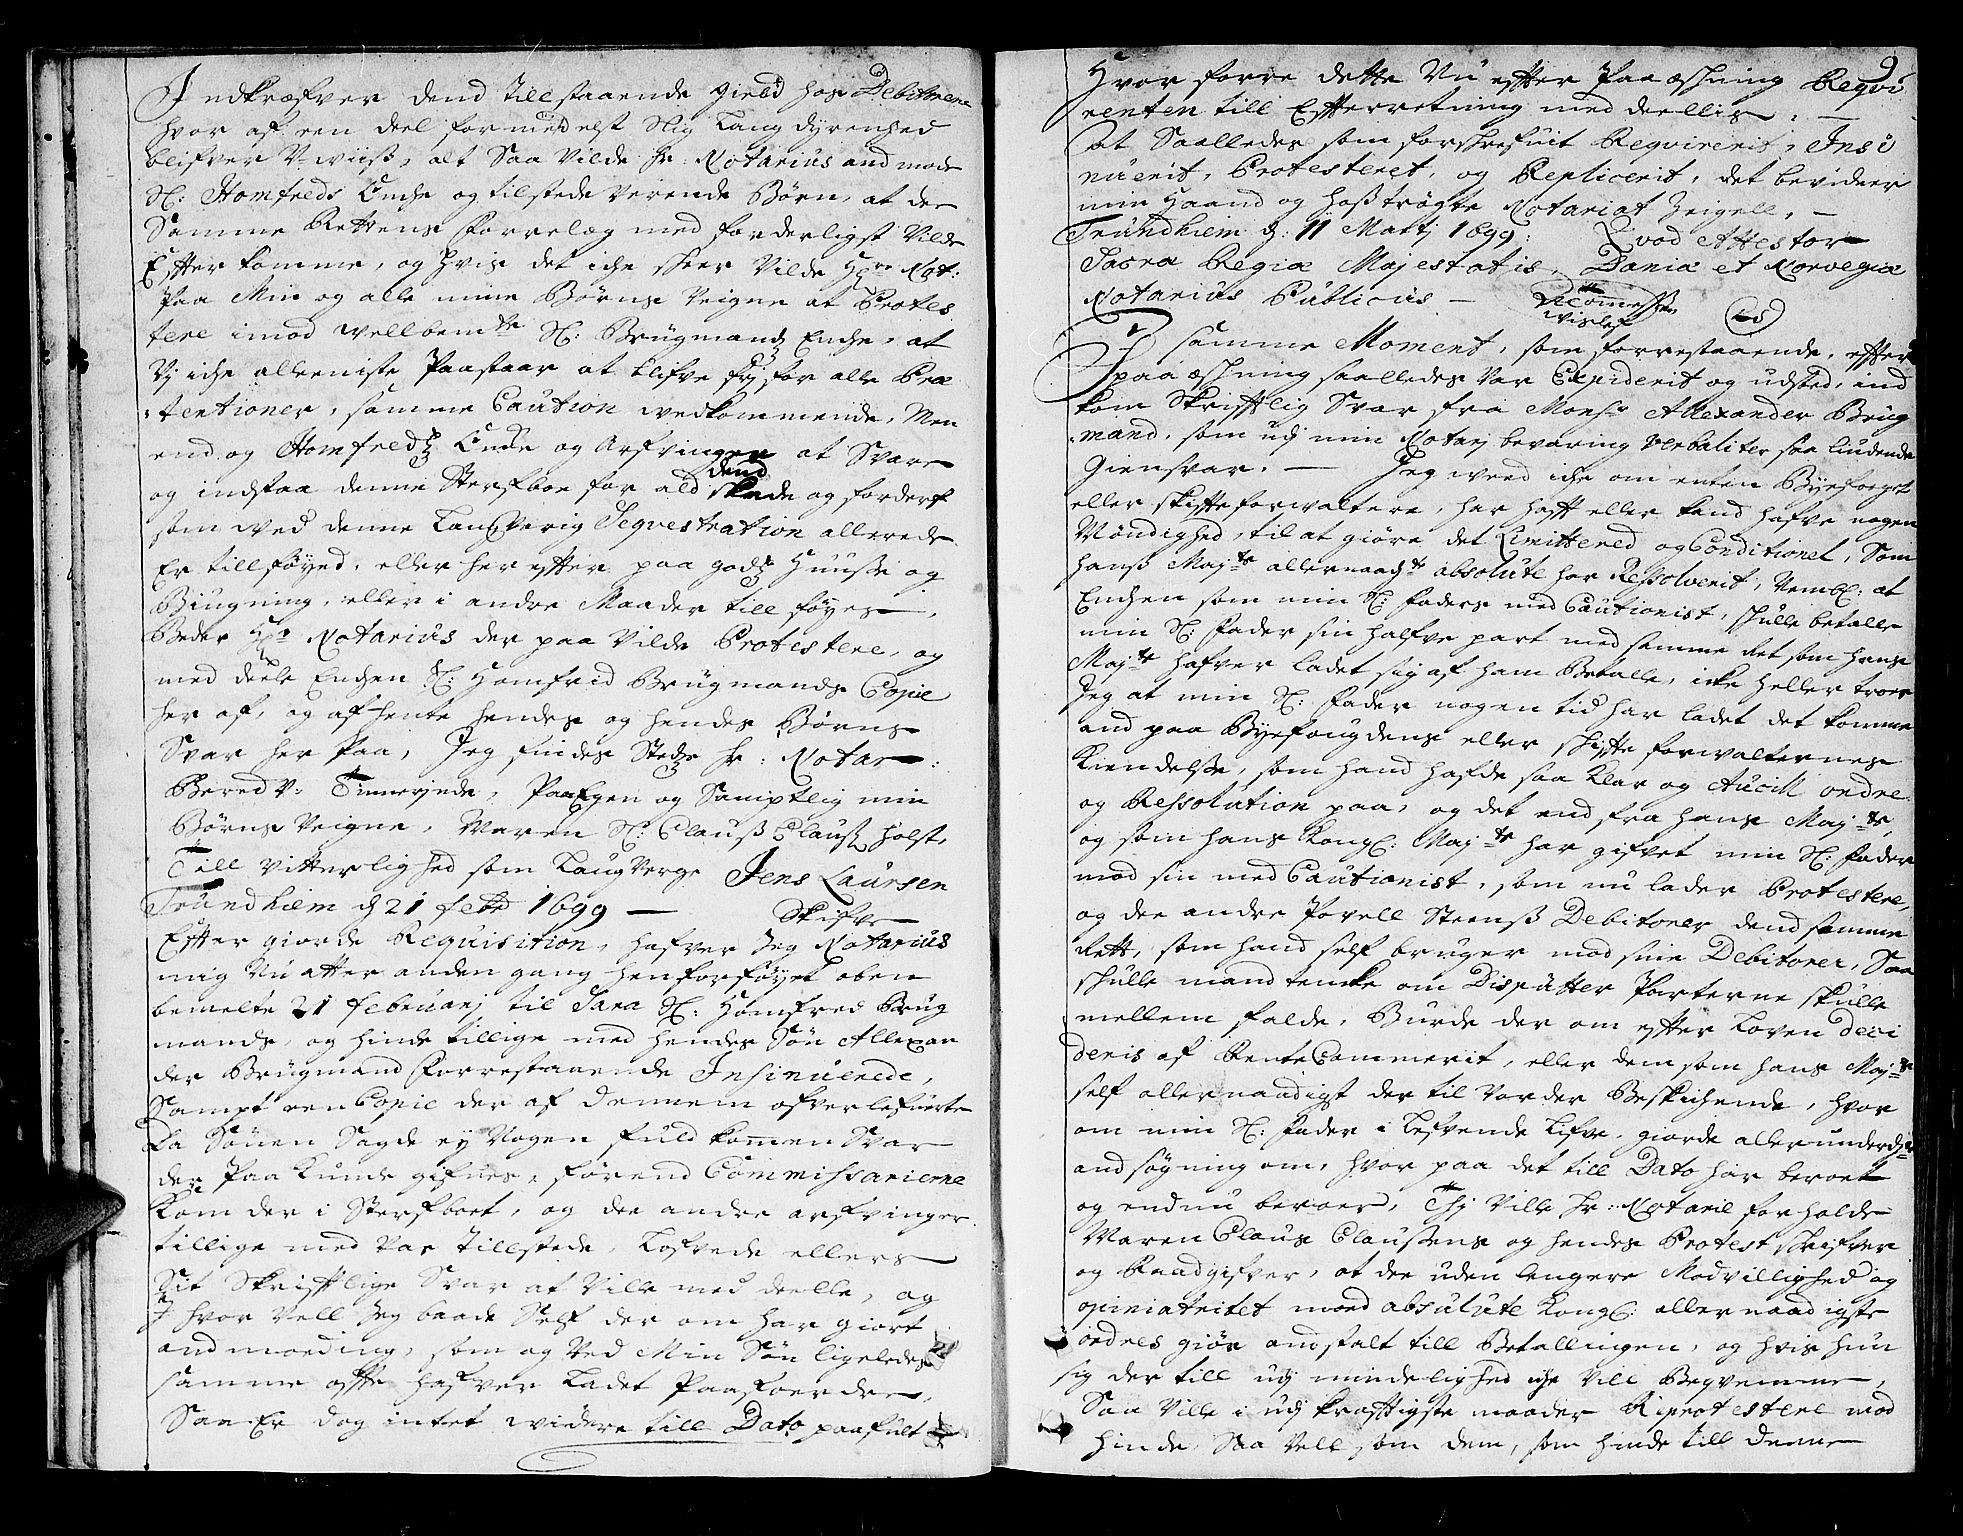 Indkræfver dend tillstaaende gield hos Debitorene
hvor af een deel formedelst slig lang dyrenhed
blifver U-wiiss, alt saa vilde Hr. Notarius andmode
Sl: Homfreds Enche og tilstede verende Børn, at de
Samme Rettens Forrelæg med forderligst vilde
Efterkomme, og hvis det iche skeer vilde Hr. Not:
Paa Min og alle mine Børns veigne at Protes
tere imod wellbemte Sl: Brügmands Enche, at
Vj iche alleeniste Paastaar at blifve fri for alle Præ
tentioner, samme Caution wedkommende, Men
end og Homfreds Enche og Arfvinger at Svare
og indstaa denne Sterfboe for ald dend skade og forderf
som wed denne langvarig Seqvestration allerede
Er tillføyed, eller her effter paa gods Huusse og
Biugning, eller i andre Maader tillføyes,
Beder Hr. Notarius der paa vilde Protestere, og
med deele Enchen Sl: Homfrid Brügmands Copie
her af, og afhente hendes og hendes Børns
Svar her Paa, Jeg findes stedse Hr: Notar:
Beredv: Tinnerinde, Paa Egen og Samptlig min
Børns Veigne, Maren Sl: Clauss Clauss: Holst,
Till vitterlighed som Laugverge Jens Laursen
Trundhiem d 21 febr 1699 — Skifve
Effter giorde Requisition, hafver Jeg Notarius
mig Nu atter anden gang henforføyet oben
bemelte 21 februarj til Sara Sl: Homfred Brüg
mands, og hinde tillige med hendes Søn Allexan
der Brügmand Forrestaaende Insinuerede,
Sampt een Copie der af dennem ofverlefverte
Da Sønen Sagde ey Nogen fuldkommen Svar
der Paa kunde gifves, førend Commissarierne
Kom der i Sterfboet, og de andre arfvinger
tillige med var tillstede, Lofvede ellers
Sit Skrifftlige Svar at ville med deelle, og
I hvor vell Jeg baade Self der om har giort
andmoeding, som og ved Min Søn ligeledes
samme offte hafver ladet Paafordre,
Saa Er dog intet widere till Dato paafult
9
Hvor forre dette Nu effter Paaæshning Reqvi
renten till Efterretning meddeellis, —
At Saalledes som forskrefvit Reqvirerit, Insi
nuerit, Protesteret, og Replicerit, det bevidner
min Haand og hosstrøgte Notariat Zeigell, —
Trundhiem d: 11 Martj 1699: Qvod Attestor
Sacra Regiæ Majestatis, Daniæ et Norvegiæ
Notarius Publicus —
I samme Moment, som forrestaaende, effter
paaæshning saalledes var Expiderit og udsted, ind
kom Skrifftlig Svar fra Monsr Allexander Brüg
mand, som udj min Notarj bevaring verbaliter saa liudende
Giensvar. — Jeg weed iche om enten Byefoget
eller skifteforwaltere, har hafft eller kand hafve nogen
Myndighed, til at giøre det Limittered og Conditionel, Som
hans Majts allernaadste absolute har Ressolverit, Nemll: at
Enchen som min Sl: faders med Cautionist, skulle betalle
min Sl: Fader sin halfve part med samme Ret som hans
Majts hafver ladet sig af ham Betalle, icke Heller troer
Jeg at min Sl: Fader nogen tid har ladet det komme
and paa Byefougdens eller skiffte forwalternes
Kiendelsse, som hand hafde saa klar og Aucill ordre
og Ressolution paa, og det end fra hans Majts,
og som hans Kongl: Majts har gifvet min Sl: Fader
mod sin med Cautionist, som nu lader Protestere,
og de andre Povell Steenss Debitorer dend samme
Rett, som hand self bruger mod sine Debitorer, Saa
skulle mand tencke om Disputter Parterne skulle
mellem falde, Burde der om effter Loven deci
deris af RenteCammerit, eller dem som hans Majts
self allernaadigst der til vorder Beskichende, hvor
om min Sl: Fader i Lefvende Lifve, giorde allerunderdst
andsøgning om, hvor paa det till Dato har beroet
og endnu beroer, Thj ville Hr: Notarie forholde
Maren Claus Claussens og hendes Protest skrifver
og Raadgifver, at de uden lengere Modvillighed og
opiniatritet moed absulute Kongl: allernaadigste
ordres giør andstalt till Betallingen, og hvis hun
sig der till udj mindelighed iche vill Beqvemme,
Saa ville i udj krafftigste maader Reprotestere mod
hinde, saa vell som dem, som hinde till denne